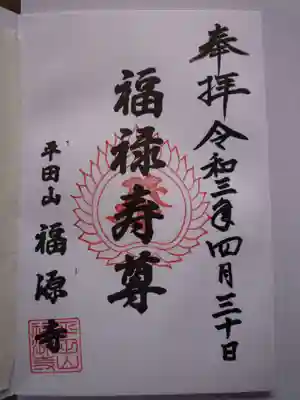 奉拝 令和三年四月三十日
福禄寿尊
平田山 福源寺